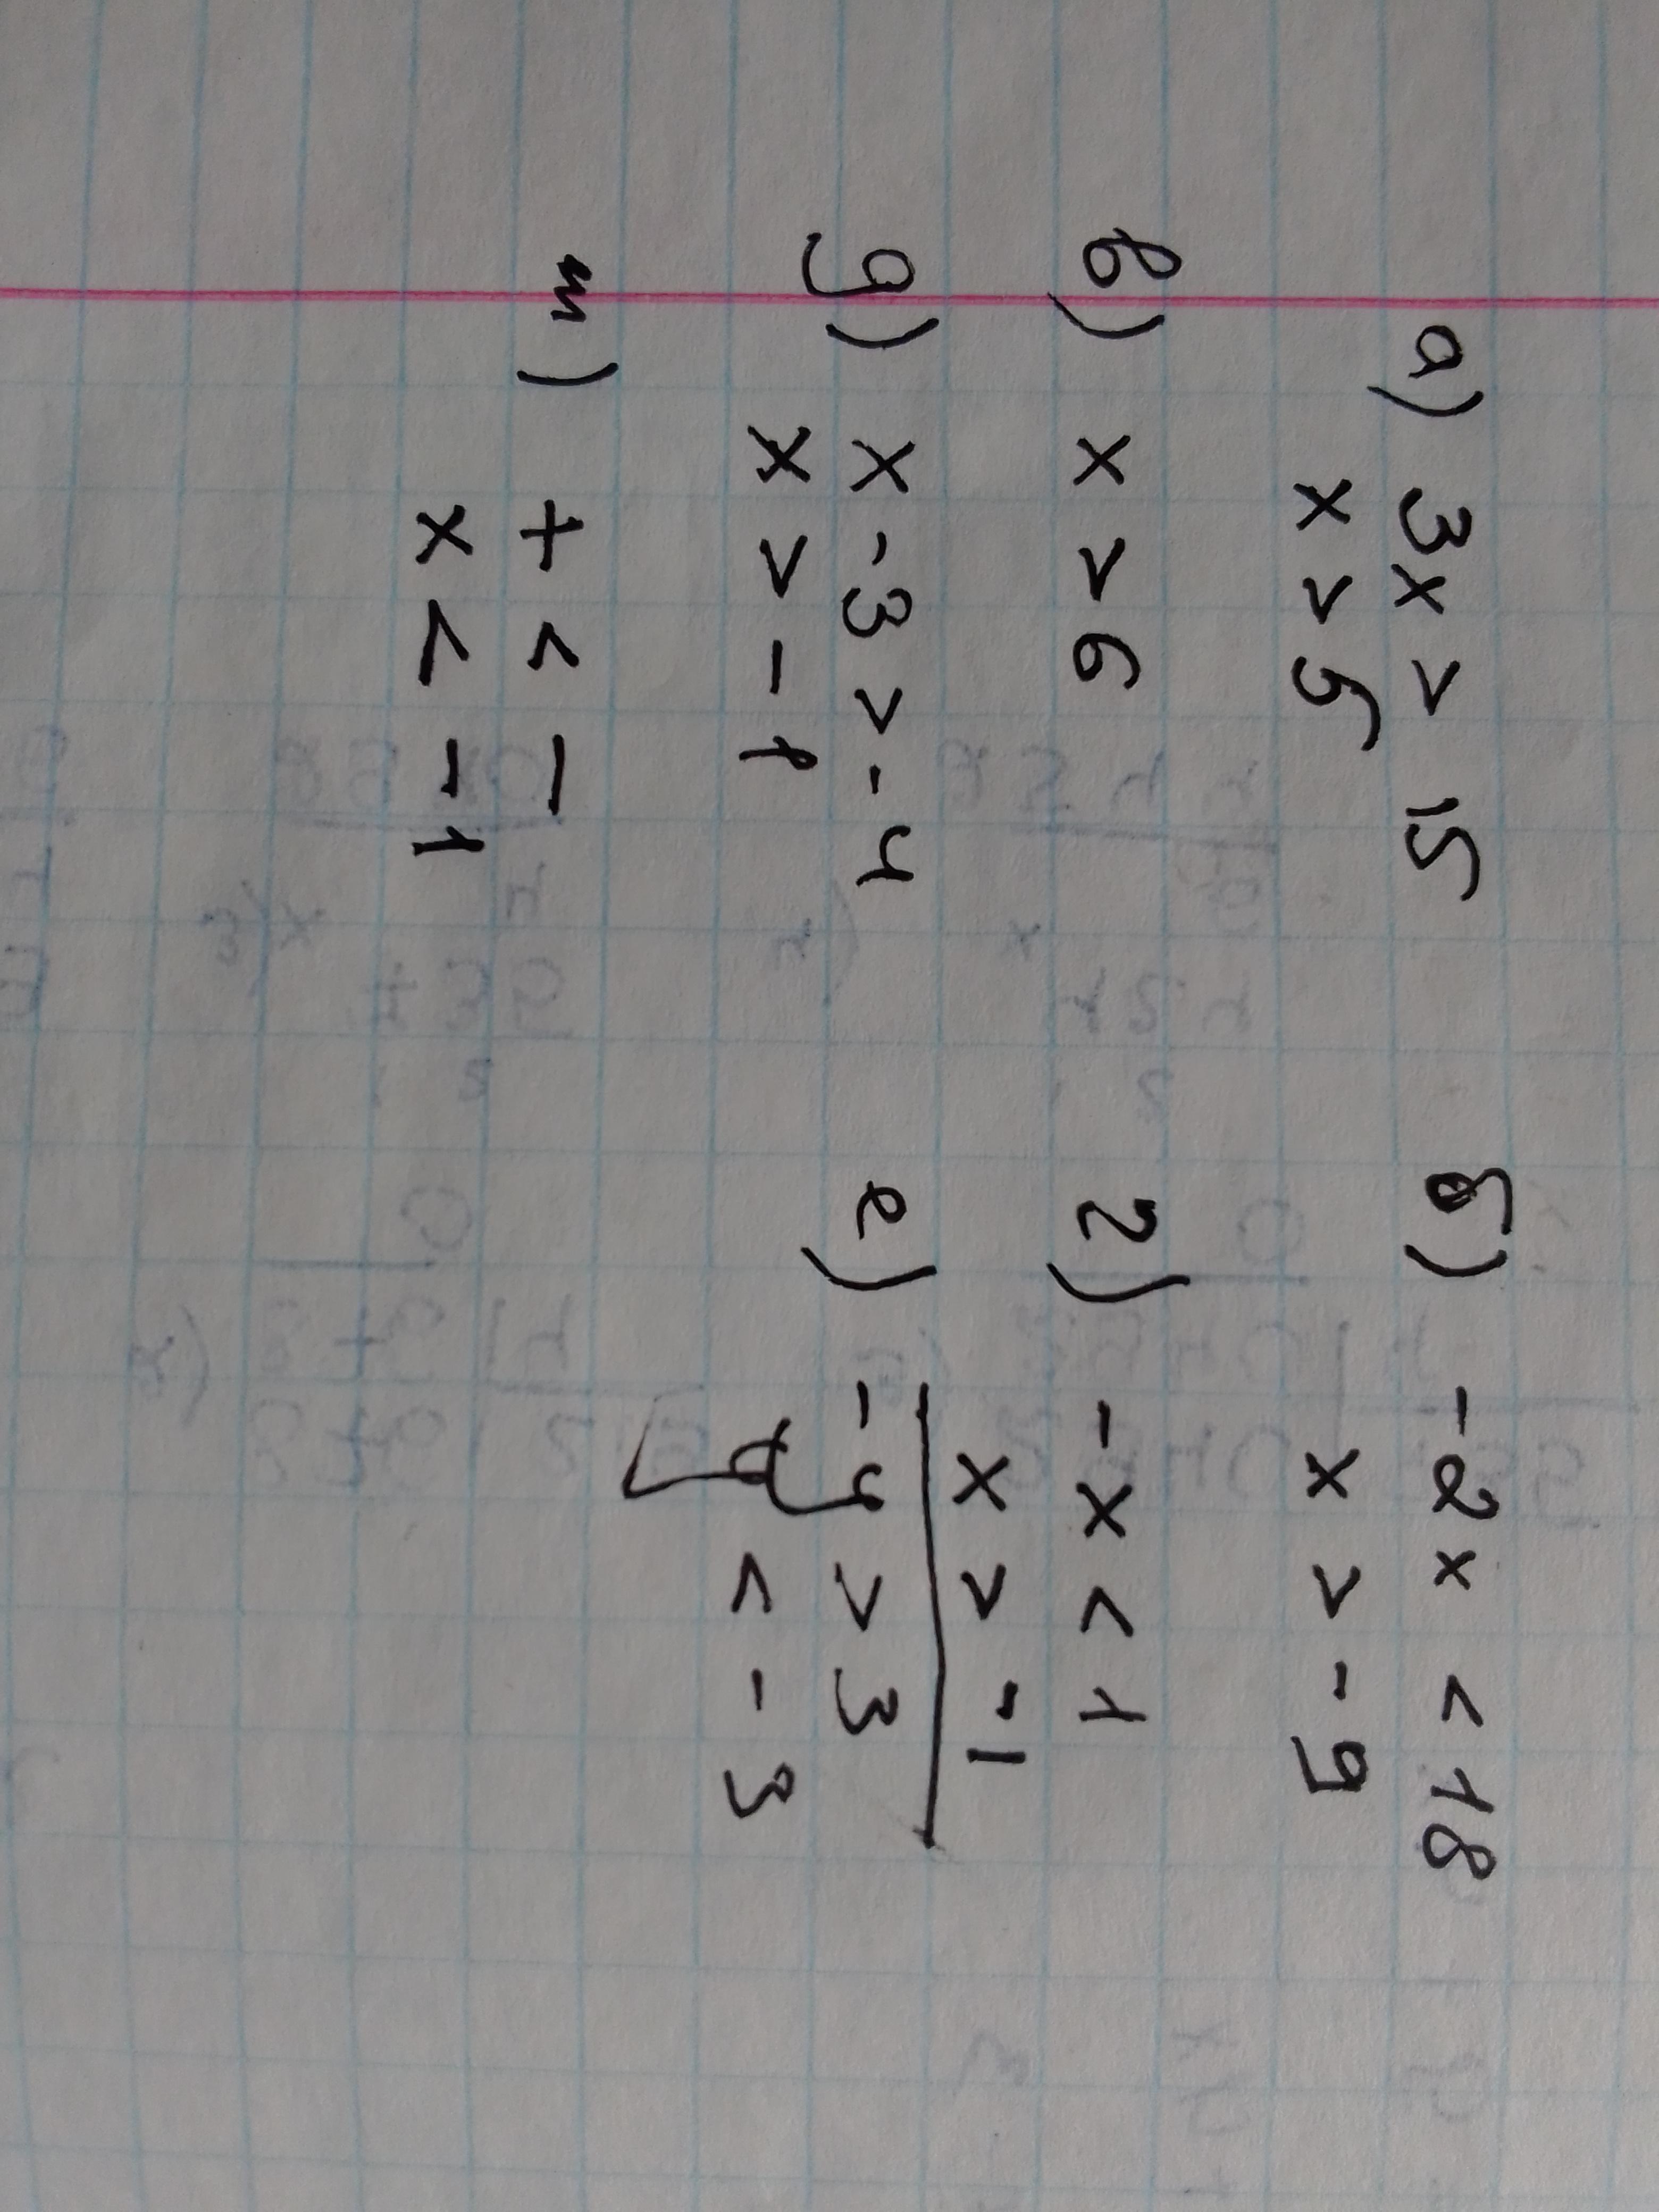 а) 3x > 15
x > 5
б) -2x < 18
x > -9
в) x > 6
г) -x < 1
x > -1
д) x - 3 > -4
x > -1
е) -y > 3
y < -3
+ < -
x < -1